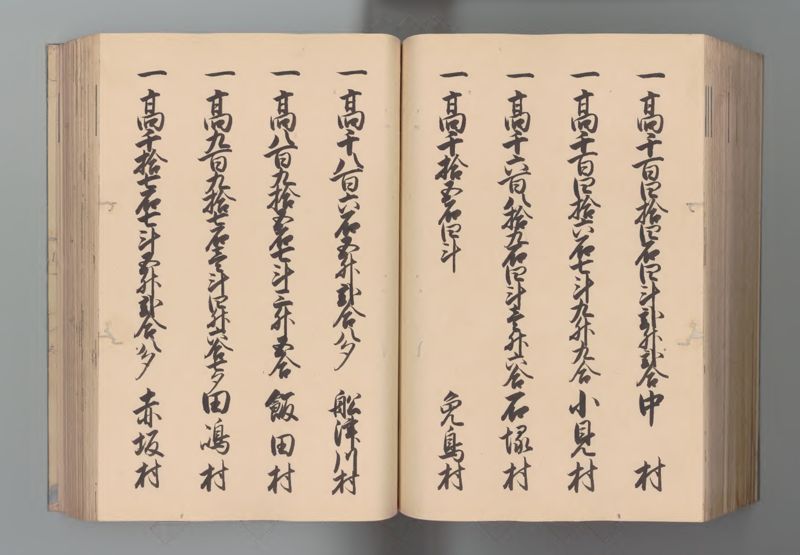 一高千百四拾四石四斗弐升弐合中村
一高千百四拾六石七斗九升九合小見村
一高千六百八拾九石四斗壱升六合石塚村
一高千拾五石四斗免鳥村
一高千八百六石五升弐合八夕船津川村
一高八百九拾五石七斗三升五合飯田村
一高九百九拾七石壱斗四升六合七夕田嶋村
一高千拾七石七斗五升弐合八夕赤坂村